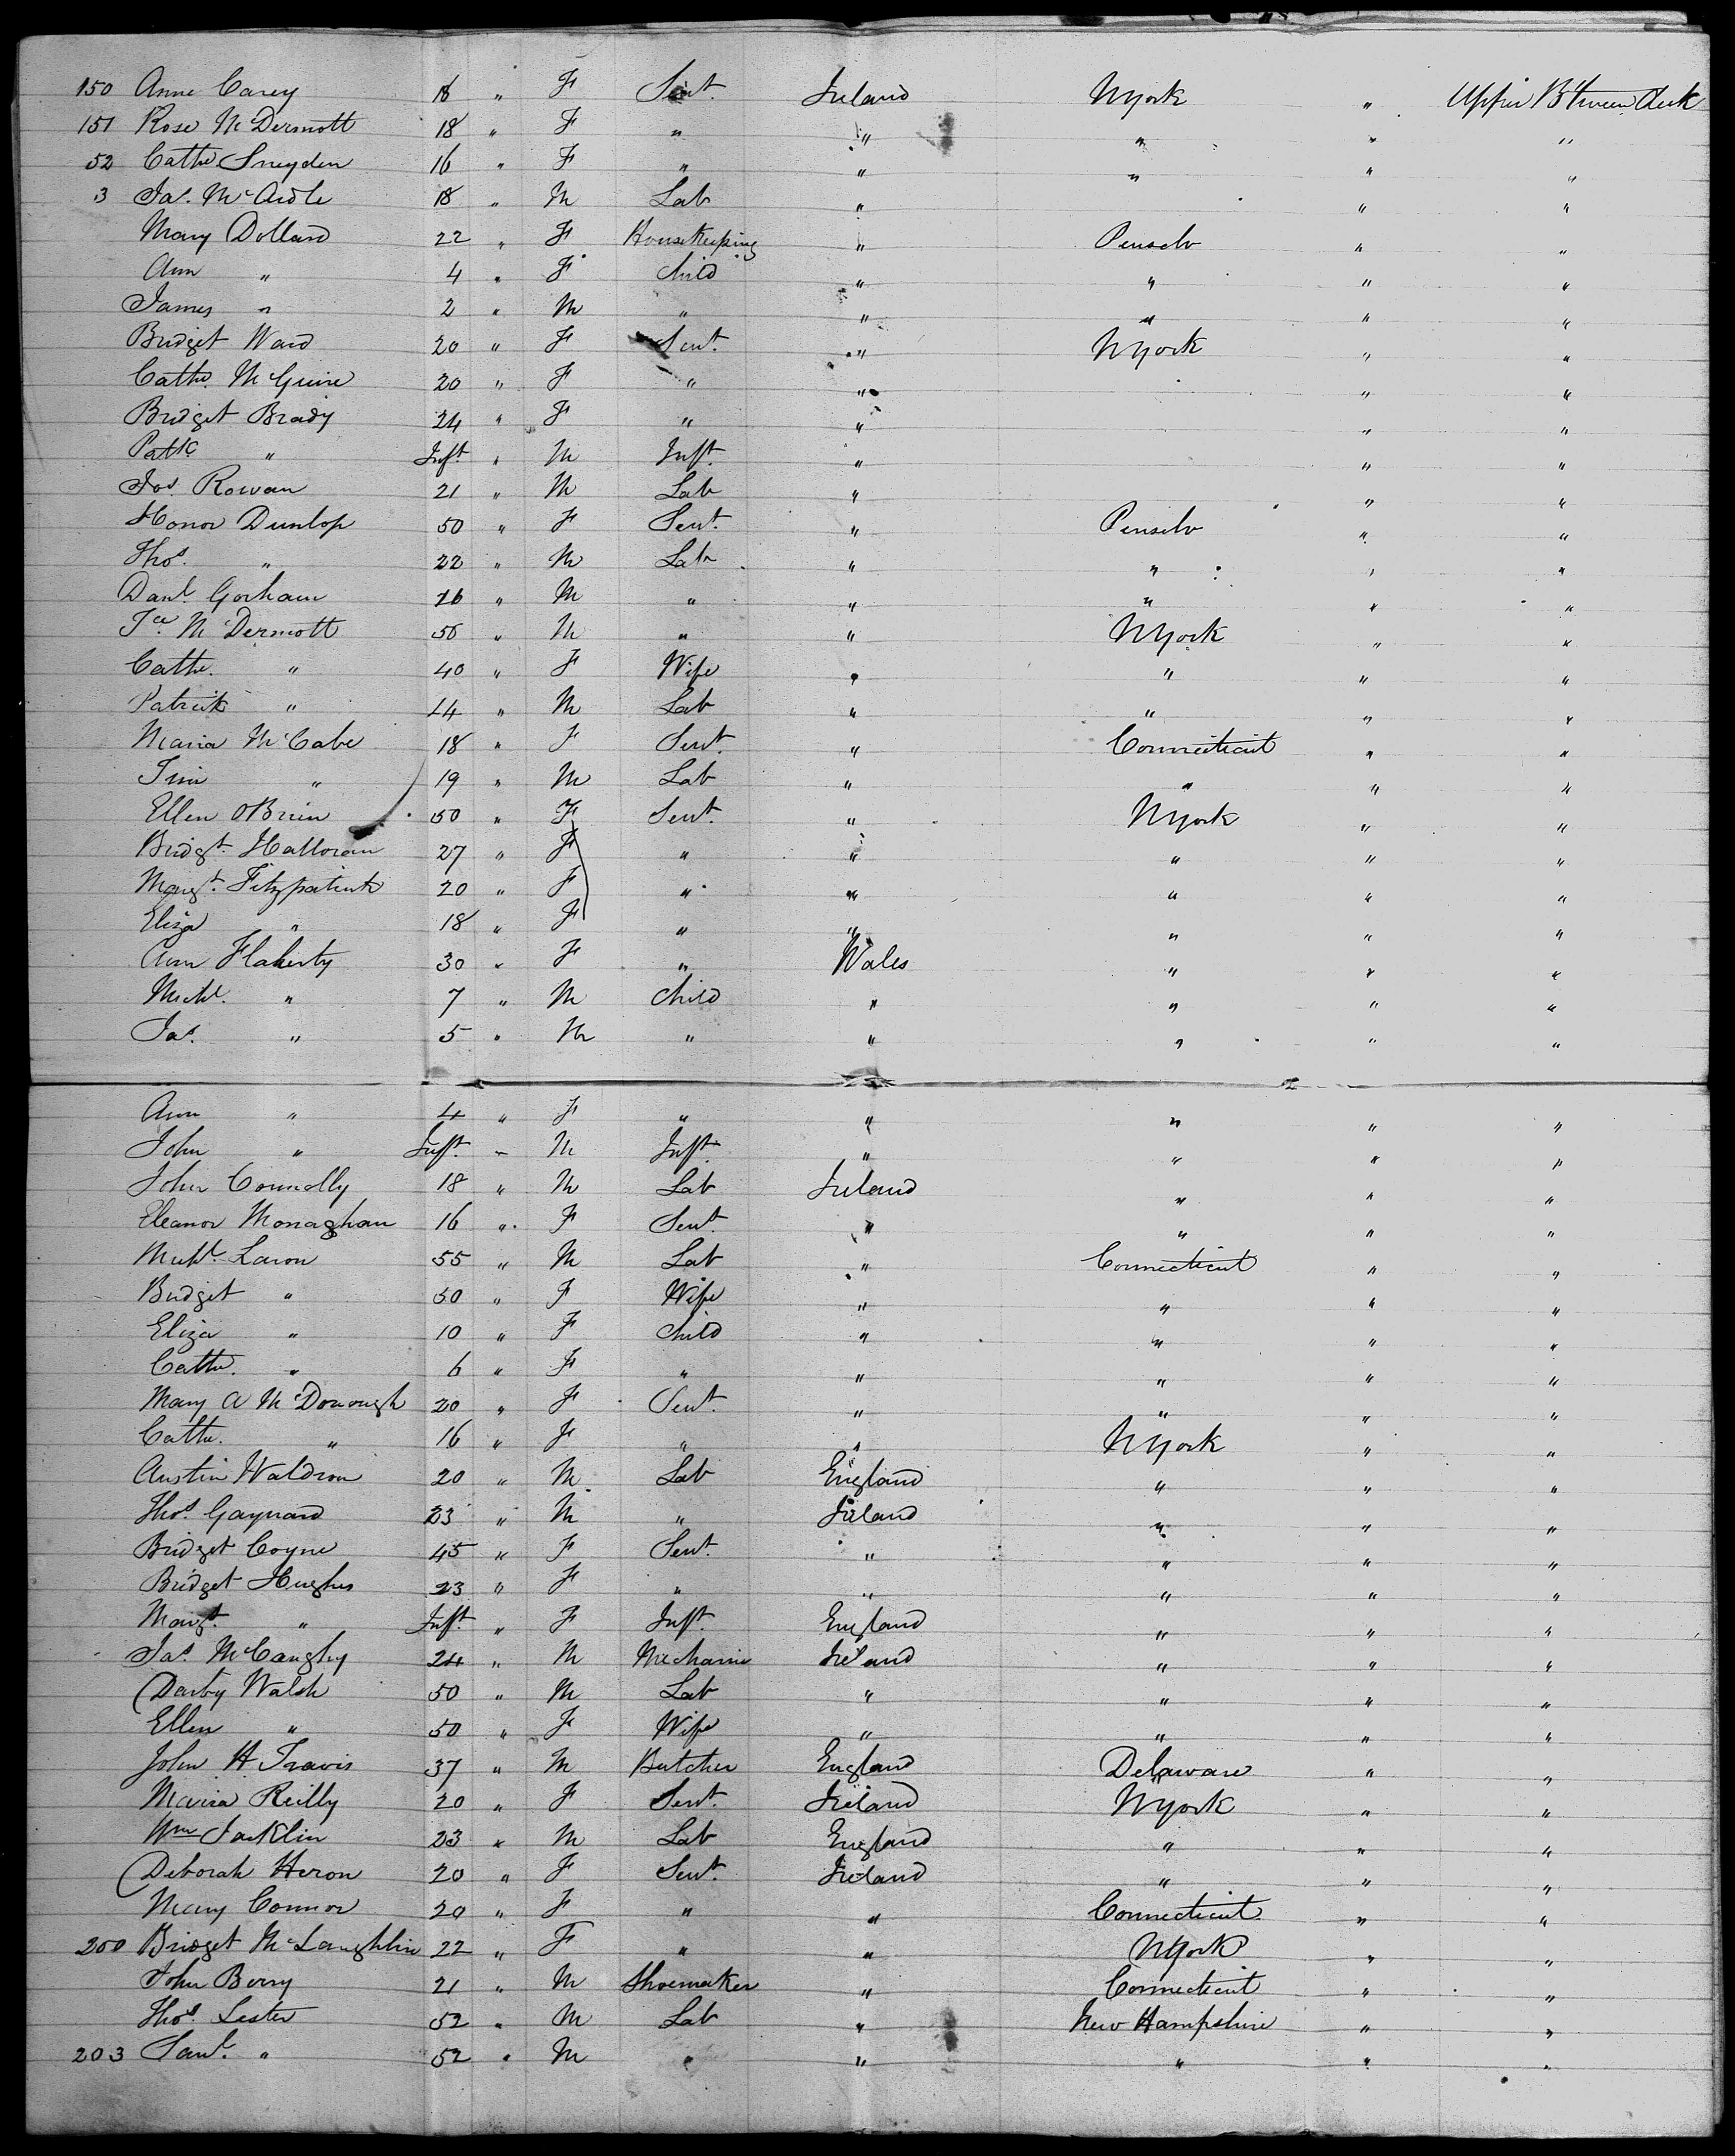 150 Anne Carey 18 " F Servt. Ireland N York " Upper B'tween deck
151 Rose McDermott 18 " F " " " " "
52 Cathe Sneyden 16 " F " " " " "
3 Jas. McArdle 18 " M Lab " " "
Mary Dollard 22 " F Housekeeping " Penselv " "
Ann " 4 " F Child " " " "
James " 2 " M " " " " "
Bridget Ward 20 " F Servt. " N York " "
Cathe. McGuire 20 " F " " " "
Bridget Brady 24 " F " " " "
Patk " Inft. " M Inft. " " "
Jos. Rowan 21 " M Lab " " "
Honor Dunlop 50 " F Servt. " Penselv " "
Thos. " 22 " M Lab " " " "
Danl. Gorham 26 " M " " " " "
Jce. McDermott 56 " M " " N York " "
Cathe. " 40 " F Wife " " " "
Patrick " 14 " M Lab " " " "
Maria McCabe 18 " F Servt. " Connecticut " "
Jim " 19 " M Lab " " " "
Ellen O'Brien 50 " F Servt. " N York " "
Bridgt. Halloran 27 " F " " " " "
Margt. Fitzpatrick 20 " F " " " " "
Eliza " 18 " F " " " " "
Ann Flaherty 30 " F " Wales " " "
Michl. " 7 " M Child " " " "
Jas. " 5 " M " " " " "
Ann " 4 " F " " " " "
John " Inft. " M Inft. " " " "
John Connolly 18 " M Lab Ireland " " "
Eleanor Monaghan 16 " F Servt. " " " "
Michl. Lavon 55 " M Lab " Connecticut " "
Bridget " 50 " F Wife " " " "
Eliza " 10 " F Child " " " "
Cathe. " 6 " F " " " " "
Mary A McDonough 20 " F Servt. " " " "
Cathe. " 16 " F " " N York " "
Austin Waldron 20 " M Lab England " " "
Thos. Gaynard 23 " M " Ireland " " "
Bridget Coyne 45 " F Servt. " " " "
Bridget Hughes 23 " F " " " " "
Margt. " Inft. " F Inft. England " " "
Jas. McCaughy 24 " M Mechanic Ireland " " "
Darby Walsh 50 " M Lab " " " "
Ellen " 50 " F Wife " " " "
John H Travis 37 " M Butcher England Delaware " "
Maria Reilly 20 " F Servt. Ireland N York " "
Wm Jacklin 23 " M Lab England " " "
Deborah Heron 20 " F Servt. Ireland " " "
Mary Connor 20 " F " " Connecticut " "
200 Bridget McLaughlin 22 " F " " N York " "
John Berry 21 " M Shoemaker " Connecticut " "
Thos. Lester 52 " M Lab " New Hampshire " "
203 Saml. " 52 " M " " " " "